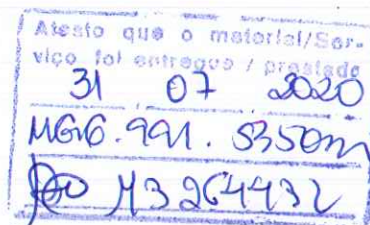 Atesto que o material/Ser-
viço foi entregue / prestado
31 07 2020
MG16.991.535
M3264432